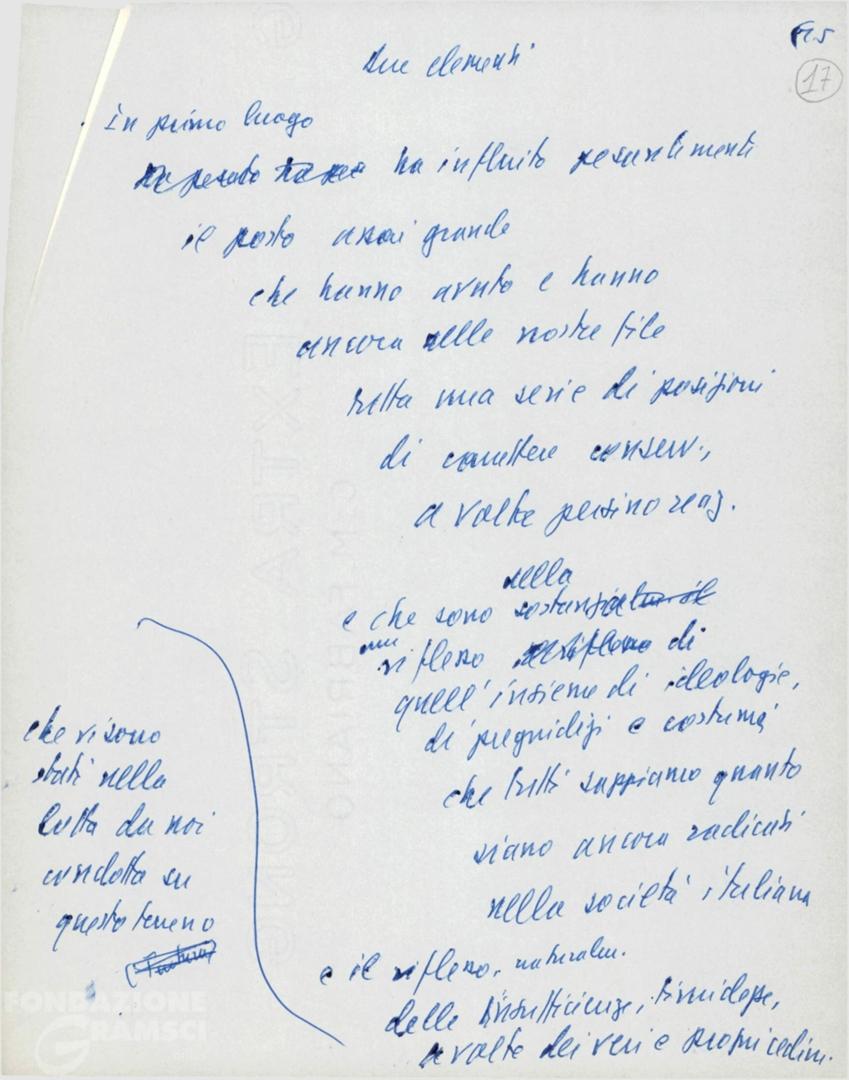 17
Due elementi
In primo luogo
ha pesato ha influito pesantemente
il posto assai grande
che hanno avuto e hanno
ancora nelle nostre file
tutta una serie di posizioni
di carattere conserv.,
a volte persino reaz.
nella
e che sono sostanzialm. il
un riflesso di
quell'insieme di ideologie,
di pregiudizi e costumi
che tutti sappiamo quanto
siano ancora radicati
nella società italiana
e il riflesso, naturalm.
delle insufficienze, timidezze,
a volte dei veri e propri cedim.
che vi sono
stati nella
lotta da noi
condotta su
questo terreno
FONDAZIONE
GRAMSCI
EXTRA STRONG
C.M. FABRIANO